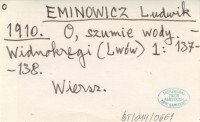 EMINOWICZ Ludwik
1910. O, szumie wody. -
Widnokręgi (Lwów) 1: 137-
-138.
Wiersz.